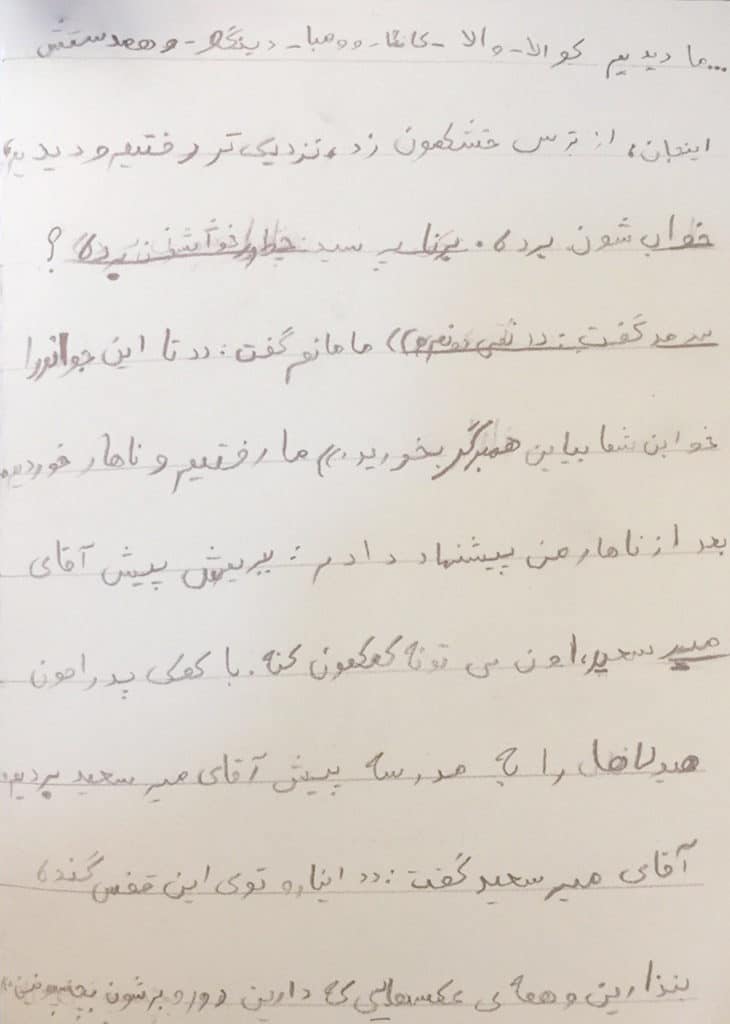 ...ما دیدیم کوالا - والا - کانگا - وومبا - دینگو - و همدستش
اینجان، از ترس خشکمون زد، نزدیک تر رفتیم و دیدیم،
خواب شون برده. پرنا پرسید: چطور خوابشون برده؟
سرمد گفت: ((نمی دونم)) مامانم گفت: ((تا این جوانورا
خوابن شما بیاین همبرگر بخورید.)) ما رفتیم و ناهار خوردیم.
بعد از ناهار من پیشنهاد دادم: ببریمش پیش آقای
میر سعید، اون می تونه کمکمون کنه. با کمک پدرامون
هیولاها را به مدرسه پیش آقای میر سعید بردیم.
آقای میر سعید گفت: ((اینارو توی این قفس گنده
بنذارین و همه ی عکسهایی که دارین دور و برشون بچسبونین.))